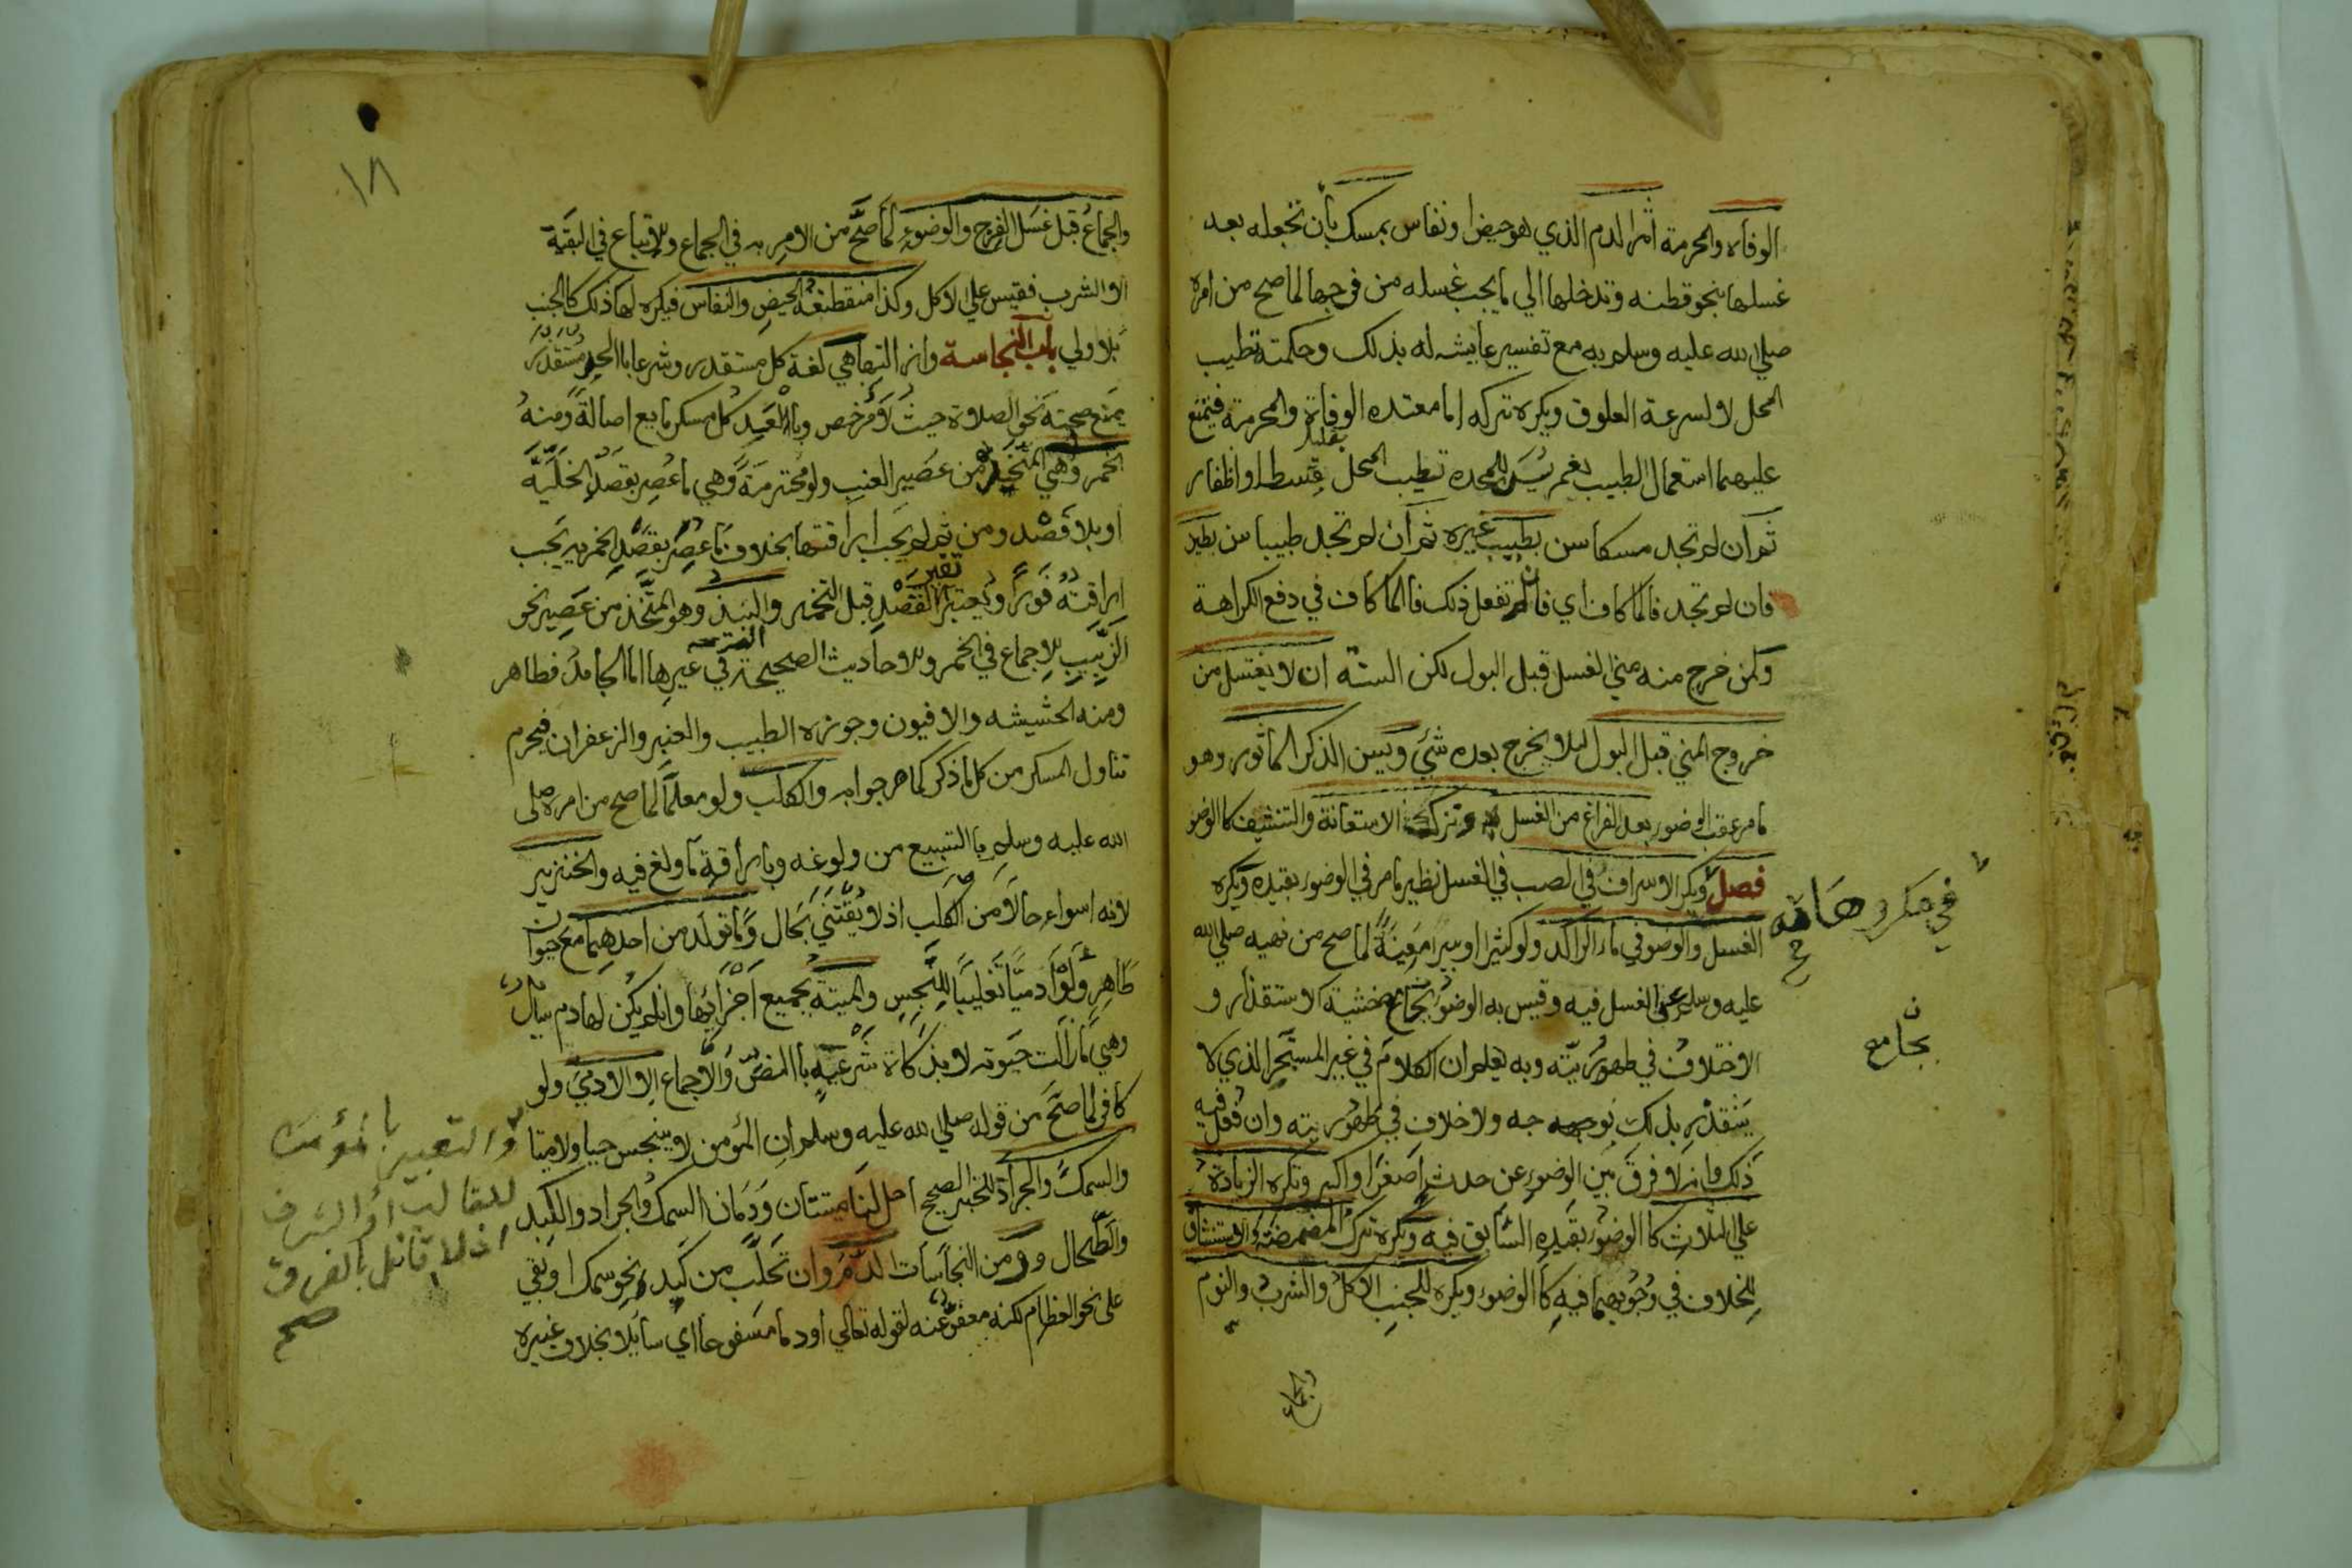 الوفاه والمحرمة اثر الدم الذي هو حيض او نفاس بمسك بأن تجعله بعد
غسلها بنحو قطنه وتدخلها الي ما يجب غسله من فرجها لما صح من امره
صلي الله عليه وسلم به مع تفسير عايشه له بذلك وحكمته تطييب
المحل لا لسرعة العلوق ويكره تركه اما معتده الوفاة والمحرمة فيمتنع
عليهما استعمال الطيب نعم يسن للمحده تطيب المحل بقليل قسط او اظفار
ثم ان لم تجد مسكا سن بطيب غيره ثم ان لم تجد طيبا سن بطين
فان لم تجد فالما كاف اي فان لم تفعل ذلك فالما كاف في دفع الكراهة
ولمن خرج منه مني الغسل قبل البول لكن السنة ان لا يغتسل من
خروج المني قبل البول ليلا يخرج بعده شئي ويسن الذكر الماثور وهو
مامر عقب الوضور بعد الفراغ من الغسل وترك الاستعانة والتنشيف كالوضو
فصل ويكره الاسراف في الصب في الغسل نظير مامر في الوضور بقيده ويكره
الغسل والوضو في ماء الراكد ولو كثيرا او بيرا معينة لما صح من نهيه صلي الله
عليه وسلم عن الغسل فيه وقيس به الوضو بجامع خشية الاستقذار و
الاختلاف في طهوريته وبه يعلم ان الكلام في غير المستبحر الذي لا
يتقذر بذلك بوجه ولا خلاف في طهوريته وان فعل فيه
ذلك وانه لا فرق بين الوضور عن حدث اصغر او اكبر وتكره الزيادة
علي الثلاث كالوضور بقيده السابق فيه ويكره ترك المضمضة والاستنشاق
للخلاف في وجوبهما فيه كالوضوء ويكره للجنب الاكل والشرب والنوم
في مكروهاته
بجامع
والجماع
١٨
والجماع قبل غسل الفرج والوضوء لما صح من الامر به في الجماع وللاتباع في البقية
الا الشرب فقيس علي الاكل وكذا منقطعة الحيض والنفاس فيكره لها ذلك كالجنب
بلا ولي باب النجاسة وازالتها هي لغة كل مستقذر وشرعا بالحد مستقذر
يمنع صحة نحو الصلاة حيث لا مرخص وبالعد كل مسكر مايع اصالة ومنه
الخمر وهي المتخذ من عصير العنب ولو محترمة وهي ما عصر بقصد الخلية
او بلا قصد ومن ثم لم يجب اراقتها بخلاف ما عصر بقصد الخمريه يجب
اراقته فورا ويعتبر تغير القصد قبل التخمر والنبيذ وهو المتخذ من عصير نحو
الزبيب للاجماع في الخمر وللاحاديث الصحيحة في غيرها اما الجامد فطاهر
ومنه الحشيشه والافيون وجوزه الطيب والعنبر والزعفران فيحرم
تناول المسكر من كل ما ذكر كما صرحوا به والكلب ولو معلما لما صح من امره صلى
الله عليه وسلم بالتسبيع من ولوغه وبإراقة ما ولغ فيه والخنزير
لانه اسواء حالا من الكلب اذ لا يقتني بحال وما تولد من احدهما مع حيوان
طاهر ولو آدميا تغليبا للنجس والميتة بجميع اجزائها وان لم يكن لها دم سائل
وهي ما زالت حيوته لا بذكاة شرعية بالنص والاجماع الا الادمي ولو
كافر لما صح من قوله صلي الله عليه وسلم ان المؤمن لا ينجس حيا ولا ميتا
والسمك والجراد للخبر الصحيح احل لنا ميتتان ودمان السمك والجراد والكبد
والطحال ومن النجاسات الدم وان تحلب من كبد ونحو سمك او بقي
على نحو العظام لكنه معفو عنه لقوله تعالي أو دما مسفوحا اي سايلا بخلاف غيره
والتعبير بالمؤمن
للغالب او الشرف
اذ لا قائل بالفرق
صح